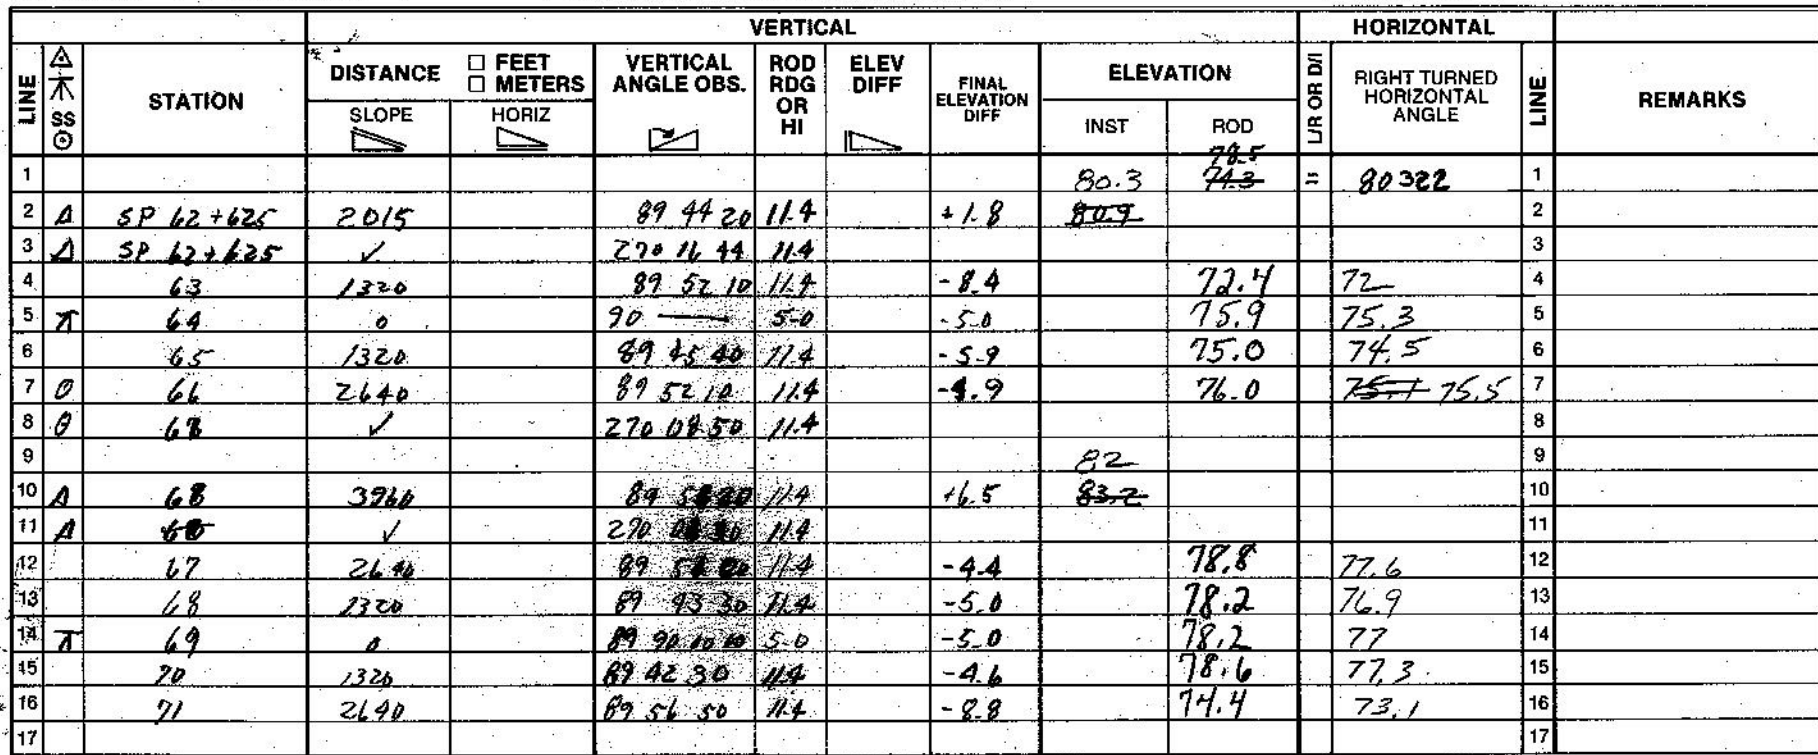 VERTICAL HORIZONTAL
LINE SS STATION DISTANCE □ FEET □ METERS SLOPE HORIZ VERTICAL ANGLE OBS. ROD RDG OR HI ELEV DIFF FINAL ELEVATION DIFF ELEVATION INST ROD L/R OR D/I RIGHT TURNED HORIZONTAL ANGLE LINE REMARKS
78.5
1 80.3 74.3 = 80322 1
2 Δ SP 62+625 2015 89 44 20 11.4 +1.8 80.9 2
3 Δ SP 62+625 ✓ 270 16 44 11.4 3
4 63 1320 89 52 10 11.4 -8.4 72.4 72 4
5 64 0 90 — 5.0 -5.0 75.9 75.3 5
6 65 1320 89 45 40 11.4 -5.9 75.0 74.5 6
7 66 2640 89 52 10 11.4 -4.9 76.0 75.1 75.5 7
8 ✓ 270 08 50 11.4 8
9 82 9
10 Δ 68 3960 89 11.4 +6.5 83.2 10
11 Δ ✓ 270 11.4 11
12 67 2640 89 11.4 -4.4 78.8 77.6 12
13 68 1320 89 43 30 11.4 -5.0 78.2 76.9 13
14 69 0 5.0 -5.0 78.2 77 14
15 70 1320 89 42 30 11.4 -4.6 78.6 77.3 15
16 71 2640 89 56 50 11.4 -8.8 74.4 73.1 16
17 17